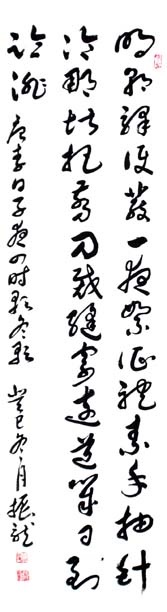 明朝驛使發一夜絮征袍素手抽針
冷那堪把剪刀裁縫寄遠道幾日到
臨洮 唐李白子夜四時歌冬歌 癸巳冬月振龍